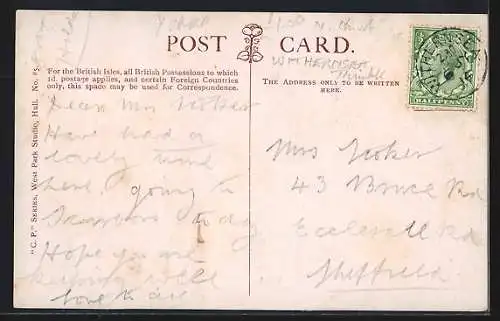 POST CARD.
For the British Isles, all British Possessions to which
1d. postage applies, and certain Foreign Countries
only, this space may be used for Correspondence.
THE ADDRESS ONLY TO BE WRITTEN
HERE.
WITHERNSEA
HALFPENNY
"C.P." SERIES, West Park Studio, Hull. No. 25.
Dear Mrs
Have had a
lovely time
here going to
today
Hope you are
keeping well
love to all
Mrs
43 Bruce Rd
Ecclesall Rd
Sheffield